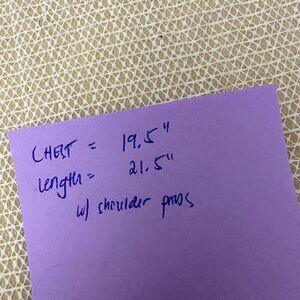 CHEST = 19.5"
Length = 21.5"
w/ shoulder pads